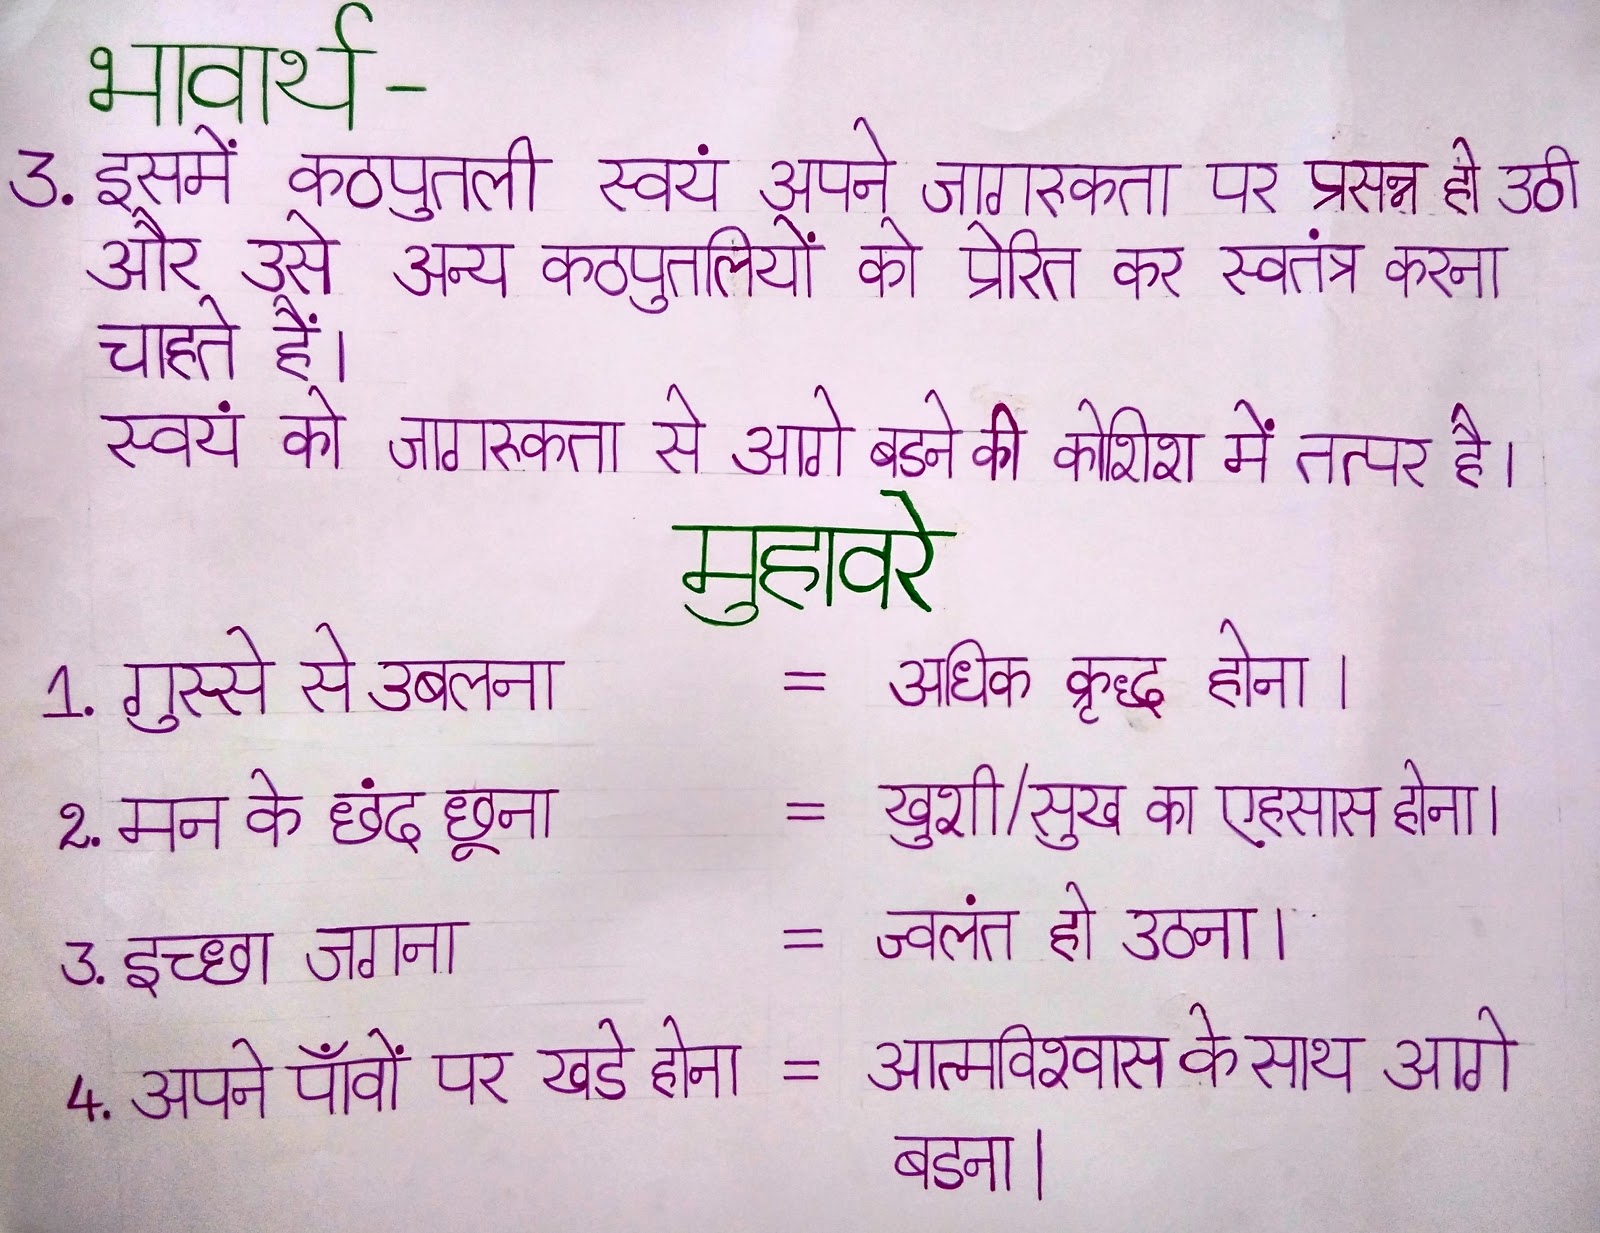 भावार्थ -
3. इसमें कठपुतली स्वयं अपने जागरुकता पर प्रसन्न हो उठी
और उसे अन्य कठपुतलियों को प्रेरित कर स्वतंत्र करना
चाहते हैं।
स्वयं को जागरुकता से आगे बडने की कोशिश में तत्पर है।
मुहावरे
1. गुस्से से उबलना = अधिक क्रृद्ध होना।
2. मन के छंद छूना = खुशी/सुख का एहसास होना।
3. इच्छा जगना = ज्वलंत हो उठना।
4. अपने पाँवों पर खडे होना = आत्मविश्वास के साथ आगे
बडना।